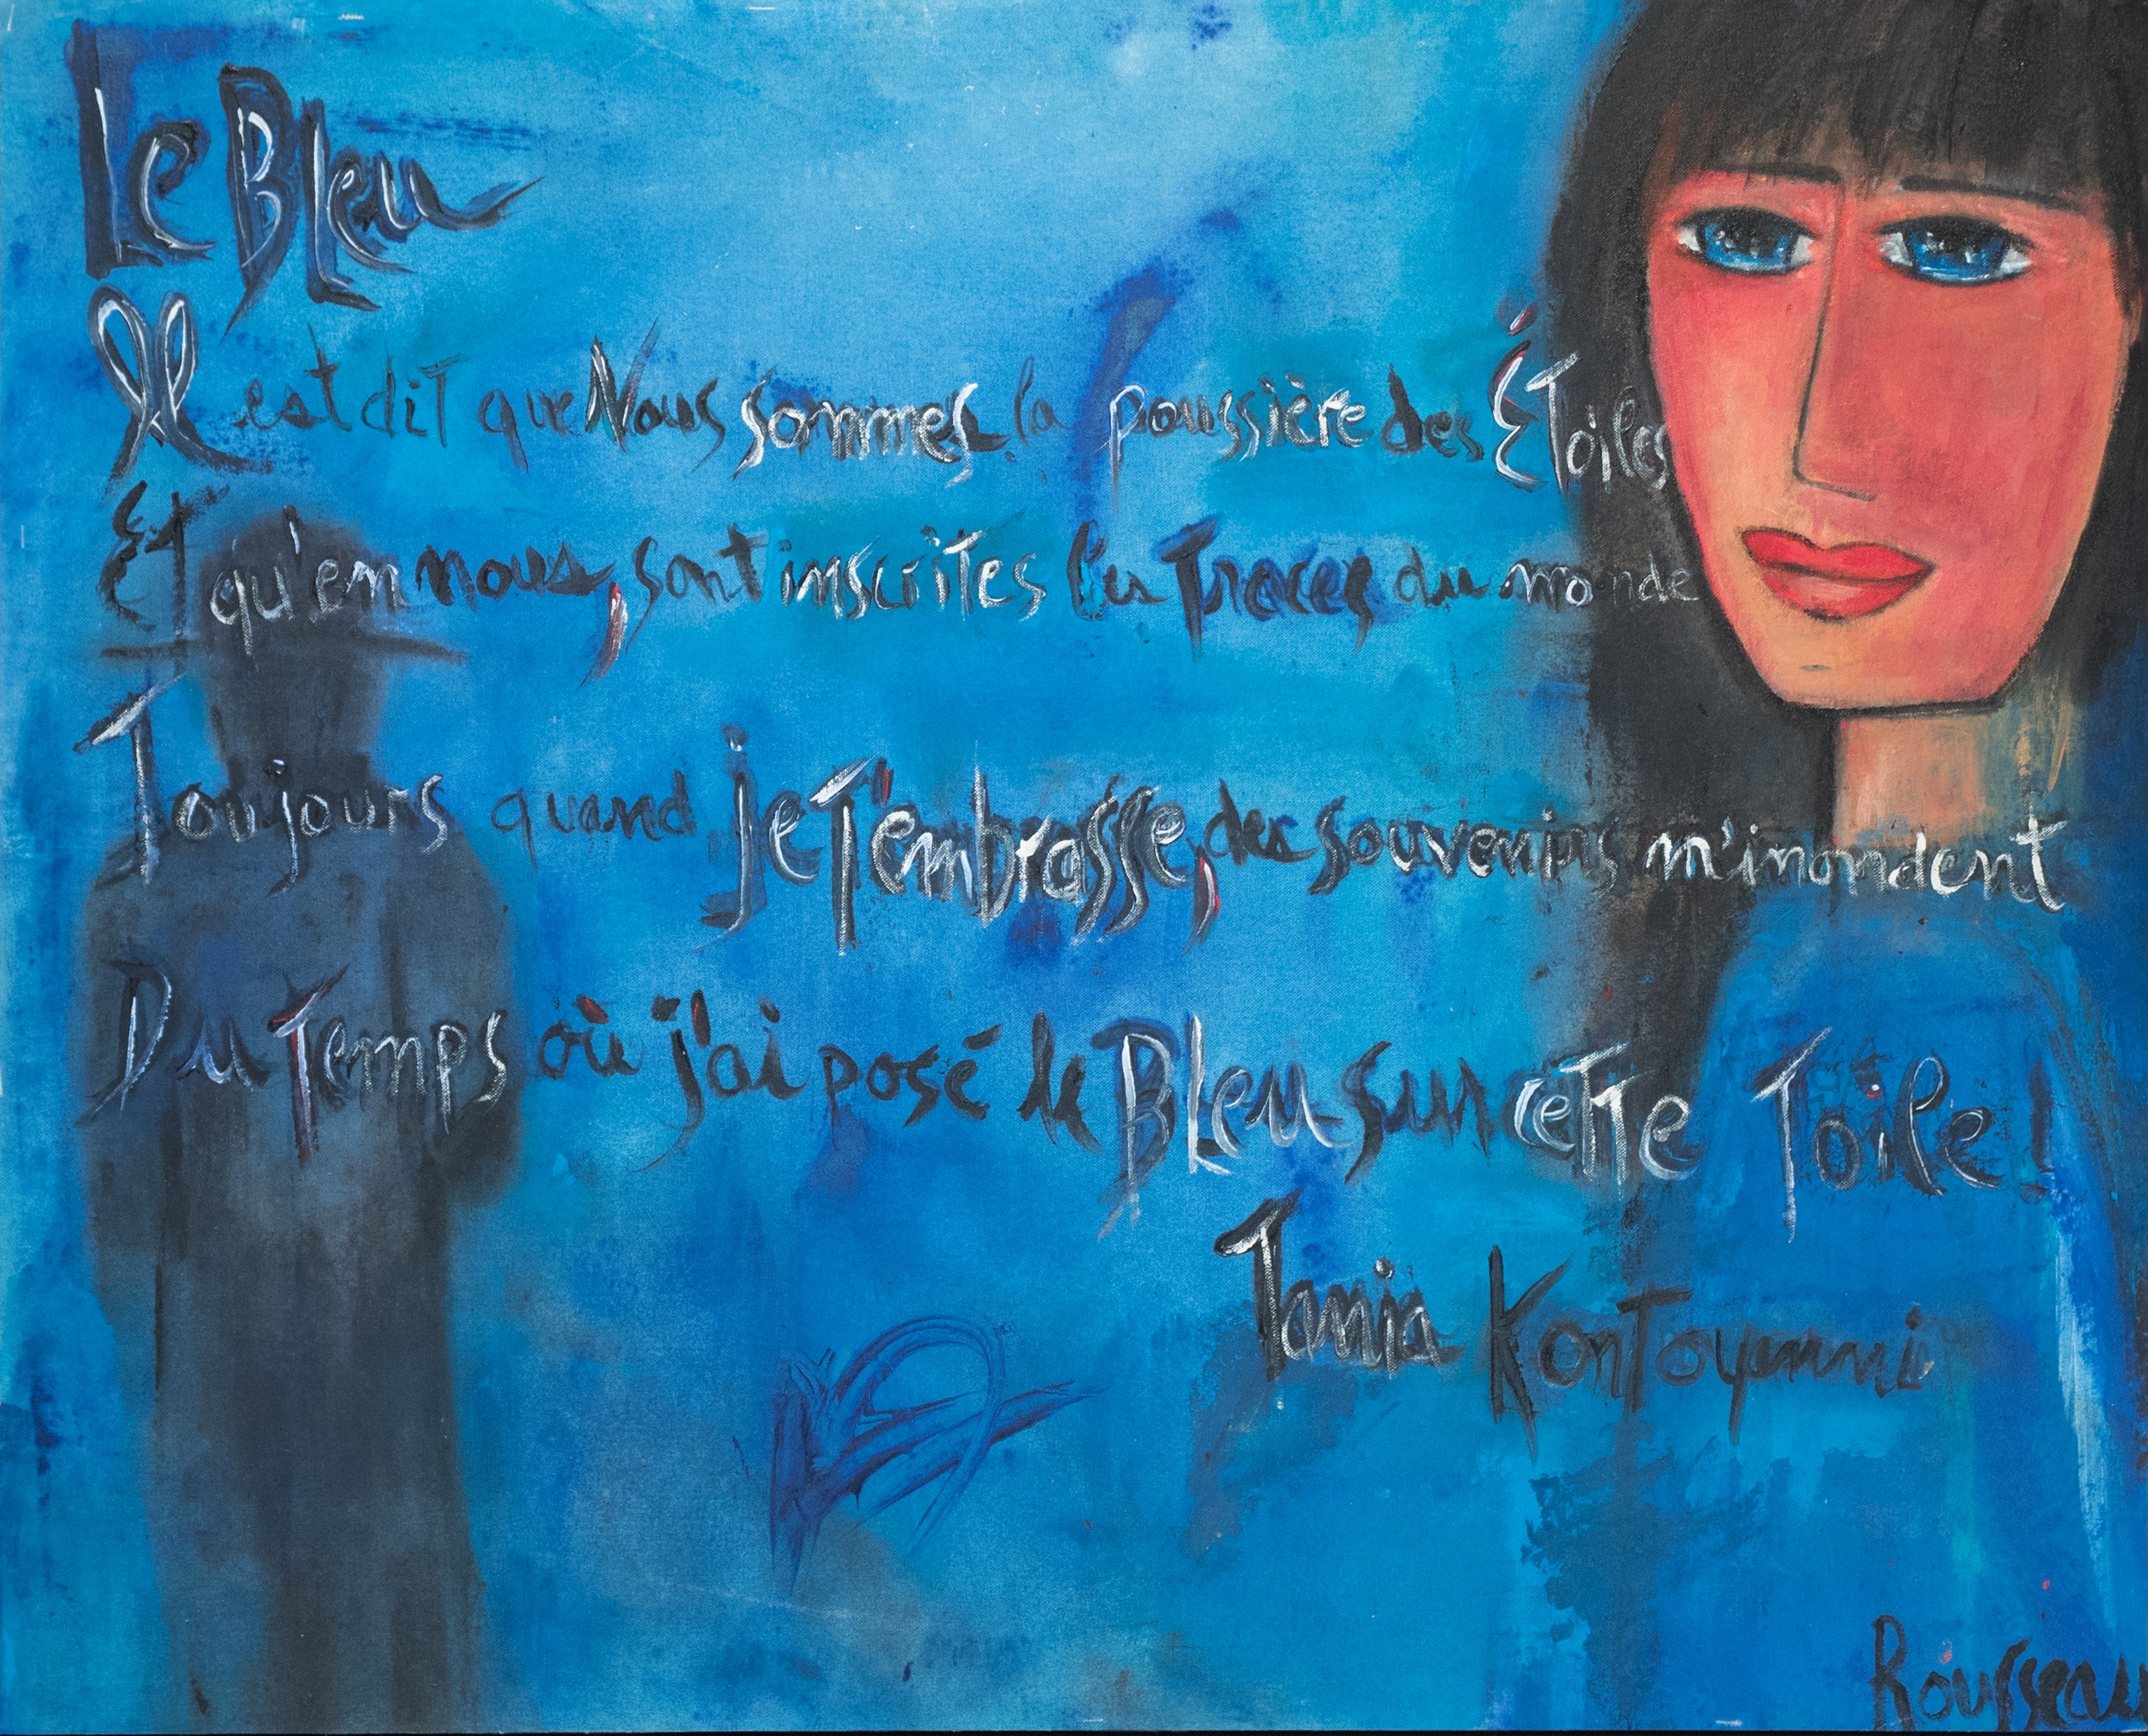 Le Bleu
Il est dit que Nous sommes la poussière des Étoiles
Et qu'en nous, sont inscrites les Traces du monde
Toujours quand je T'embrasse, des souvenirs m'inondent
Du Temps où j'ai posé le Bleu sur cette Toile!
Tania Kontoyanni
Rousseau